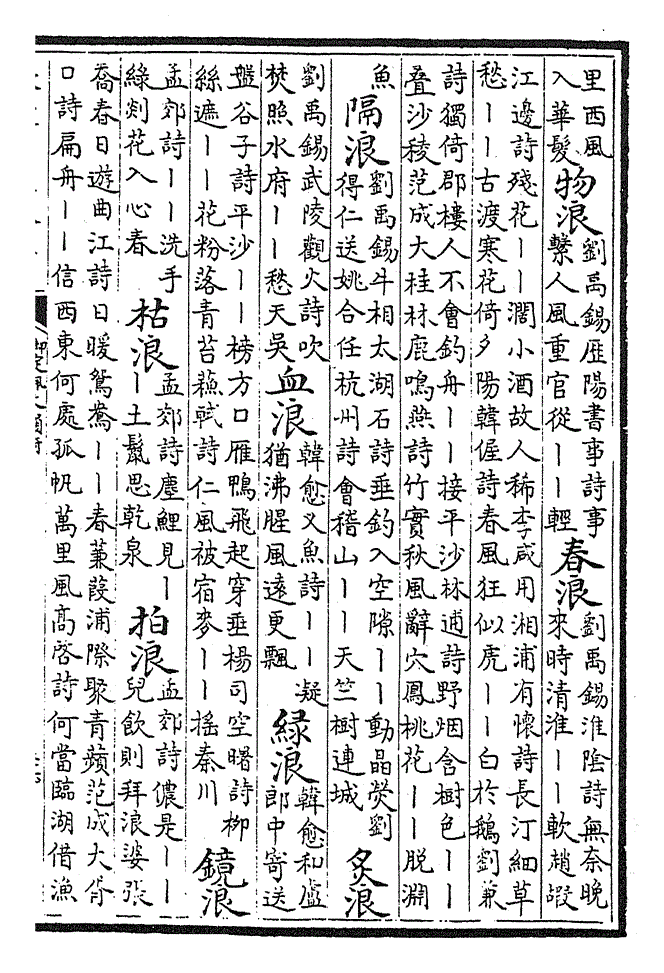 里西風
入華髮
物浪
劉禹錫歷陽書事詩事
繫人風重官從丨丨輕
春浪
劉禹錫淮陰詩無奈晚
來時清淮丨丨軟趙嘏
江邊詩殘花丨丨濶小酒故人稀李咸用湘浦有懷詩長汀細草
愁丨丨古渡寒花倚夕陽韓偓詩春風狂似虎丨丨白於鵝劉兼
詩獨倚郡樓人不會釣舟丨丨接平沙林逋詩野烟含樹色丨丨
叠沙稜范成大桂林鹿鳴燕詩竹實秋風辭穴鳳桃花丨丨脱淵
魚
隔浪
劉禹錫牛相太湖石詩垂釣入空隙丨丨動晶熒劉
得仁送姚合任杭州詩會稽山丨丨天竺樹連城
炙浪
劉禹錫武陵觀火詩吹
焚照水府丨丨愁天吳
血浪
韓愈义魚詩丨丨凝
猶沸腥風遠更飄
緑浪
韓愈和盧
郎中寄送
盤谷子詩平沙丨丨榜方口雁鴨飛起穿垂楊司空曙詩柳
絲遮丨丨花粉落青苔蘇軾詩仁風被宿麥丨丨搖秦川
鏡浪
孟郊詩丨丨洗手
緑剡花入心春
枯浪
孟郊詩塵鯉見丨
丨土鬣思乾泉
拍浪
孟郊詩儂是丨丨
兒飲則拜浪婆張
喬春日遊曲江詩日暖鴛鴦丨丨春蒹葭浦際聚青蘋范成大胥
口詩扁舟丨丨信西東何處孤帆萬里風高啓詩何當臨湖借漁